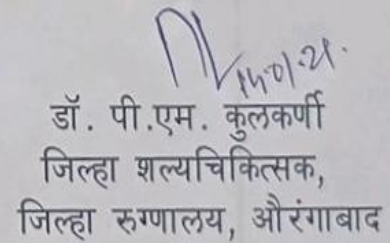 डॉ. पी.एम. कुलकर्णी
जिल्हा शल्यचिकित्सक,
जिल्हा रुग्णालय, औरंगाबाद